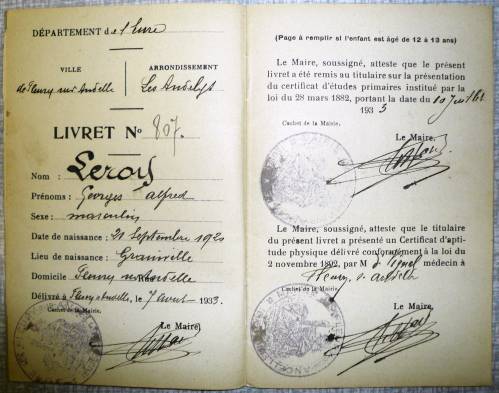 DÉPARTEMENT de l'Eure
VILLE
de Fleury sur Andelle
ARRONDISSEMENT
Les Andelys
LIVRET No 807.
Nom : Leroy
Prénoms : Georges Alfred
Sexe : masculin
Date de naissance : 21 Septembre 1920
Lieu de naissance : Grainville
Domicile Fleury sur Andelle
Délivré à Fleury s/ Andelle, le 7 Août 1933.
Cachet de la Mairie.
Le Maire,
(Page à remplir si l'enfant est âgé de 12 à 13 ans)
Le Maire, soussigné, atteste que le présent
livret a été remis au titulaire sur la présentation
du certificat d'études primaires institué par la
loi du 28 mars 1882, portant la date du 10 Juillet
1933
Cachet de la Mairie.
Le Maire,
Le Maire, soussigné, atteste que le titulaire
du présent livret a présenté un Certificat d'apti-
tude physique délivré conformément à la loi du
2 novembre 1892, par M médecin à
Fleury s. Andelle
Cachet de la Mairie.
Le Maire,